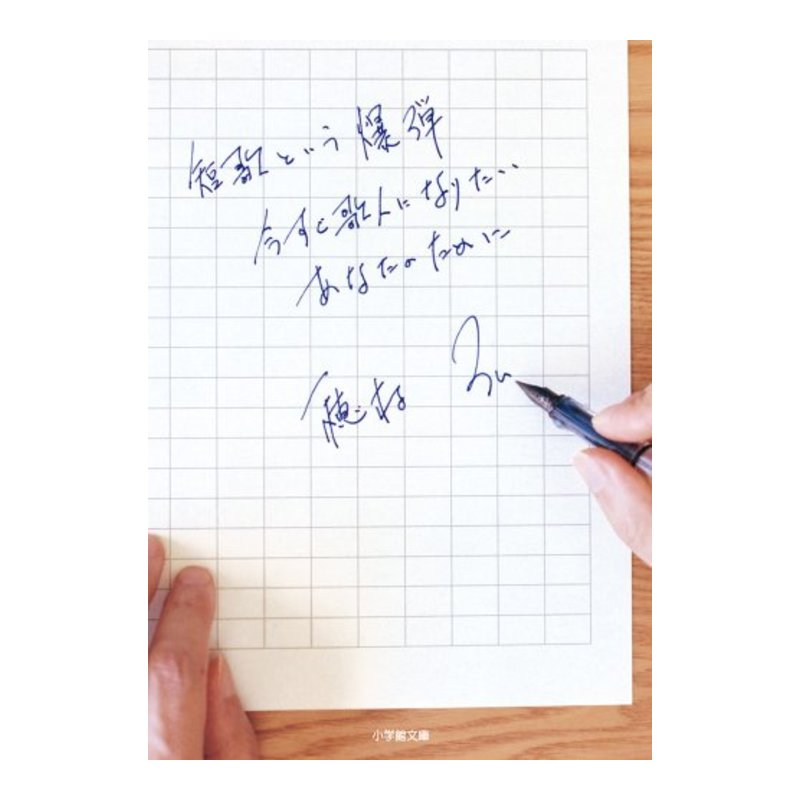 短歌という爆弾
今すぐ歌人になりたい
あなたのために
穂村 弘
小学館文庫